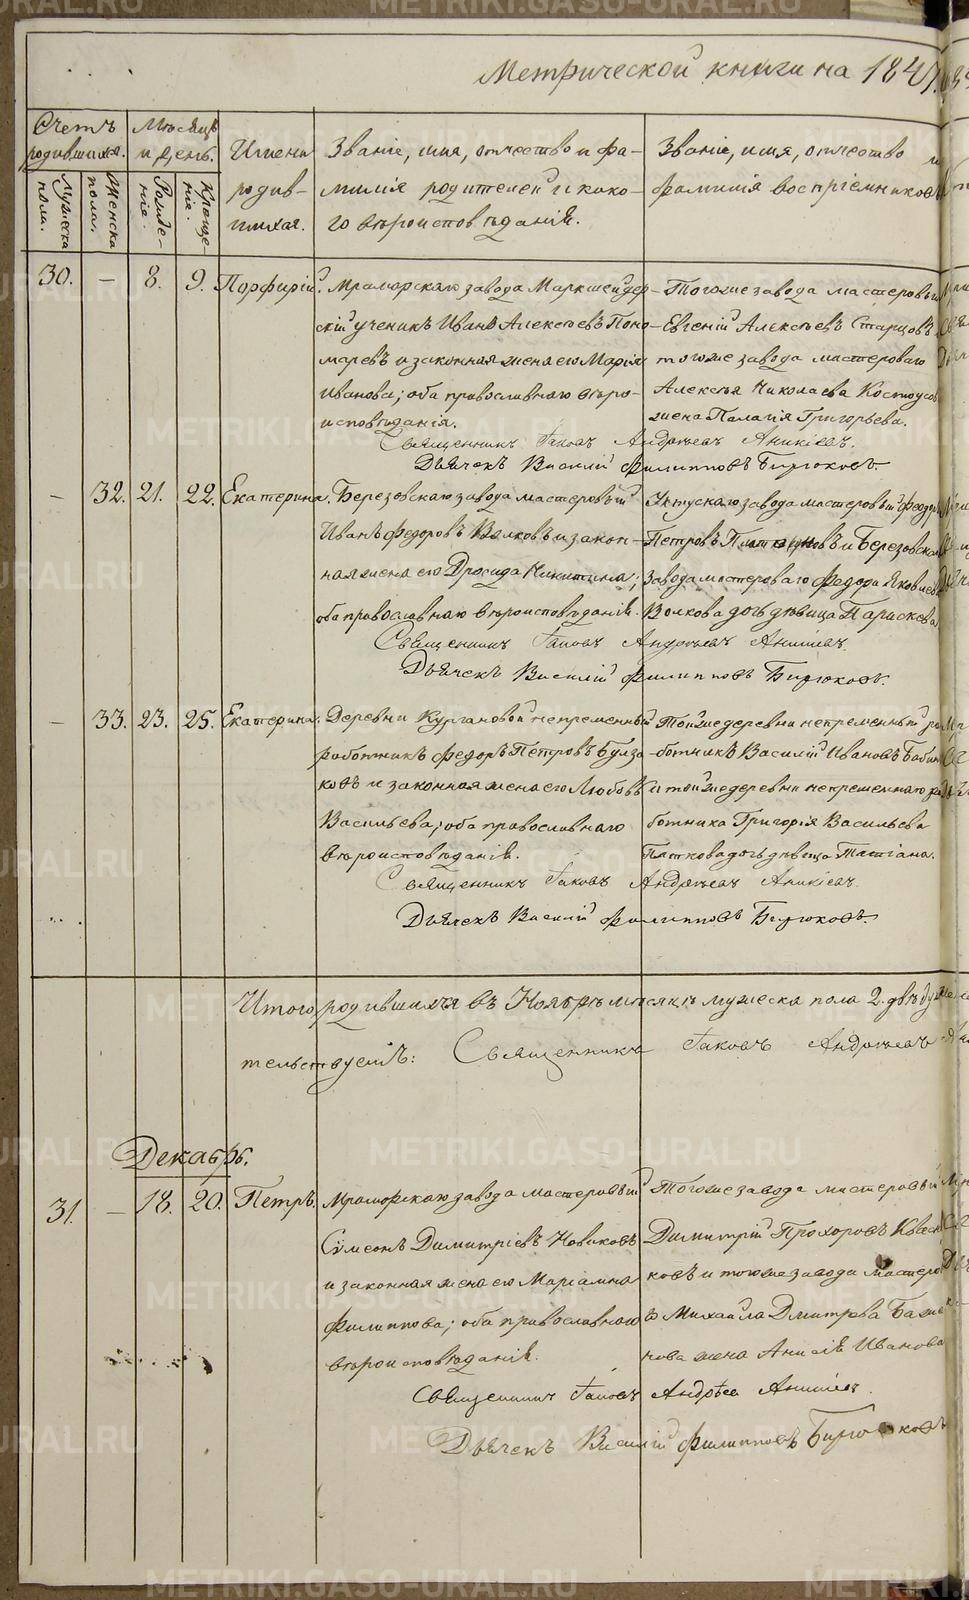 Метрической книги на 1847.
Счетъ родившихся.
Мѣсяцъ и день.
Имена родившихся.
Званіе, имя, отчество и фамилія родителей и какого вѣроисповѣданія.
Званіе, имя, отчество и фамилія воспріемниковъ
Мужеска пола.
Женска пола.
Рожденіе.
Крещеніе.
30. — 8. 9. Порфирій.
Мраморскаго завода Маркшейдер-
скій ученикъ Иванъ Алексѣевъ Поно-
маревъ и законная жена его Марія
Иванова; оба православнаго вѣро-
исповѣданія.
Тогоже завода мастеровый
Евгеній Алексѣевъ Старцовъ
тогоже завода мастероваго
Алексѣя Николаева Костоусов
жена Палагія Григорьева.
Священникъ Іаковъ Андреевъ Аникіевъ.
Дьячекъ Василій Филипповъ Бирюковъ.
— 32. 21. 22. Екатерина.
Березовскаго завода мастеровый
Иванъ Федоровъ Волковъ и закон-
ная жена его Дросида Никитина;
оба православнаго вѣроисповѣданія.
Уктускаго завода мастеровый Федоръ
Петровъ и Березовскаго
завода мастероваго Федора Яковлева
Волкова дочь дѣвица Параскева.
Священникъ Іаковъ Андреевъ Аникіевъ.
Дьячекъ Василій Филипповъ Бирюковъ.
— 33. 23. 25. Екатерина.
Деревни Кургановой непременный
работникъ Федоръ Петровъ Булза-
ковъ и законная жена его Любовь
Васильева; оба православнаго
вѣроисповѣданія.
Тойже деревни непременный ра
ботникъ Василій Ивановъ Бабин
и тойже деревни непременнаго ра
ботника Григорія Васильева
Пяткова дочь дѣвица Татіана.
Священникъ Іаковъ Андреевъ Аникіевъ.
Дьячекъ Василій Филипповъ Бирюковъ.
Итого родившихся въ Ноябрѣ мѣсяцѣ мужеска пола 2. двѣ душ
тельствуемъ: Священникъ Іаковъ Андреевъ
Декабрь.
31. — 18. 20. Петръ.
Мраморскаго завода мастеровый
Симеонъ Димитріевъ Новиковъ
и законная жена его Маріамна
Филиппова; оба православнаго
вѣроисповѣданія.
Тогоже завода мастеровый
Димитрій Прохоровъ Квасни
ковъ и тогоже завода мастеро
в Михаила Дмитрева Бажен
нова жена Анисія Иванова
Священникъ Іаковъ Андреевъ Аникіевъ.
Дьячекъ Василій Филипповъ Бирюковъ
METRIKI.GASO-URAL.RU